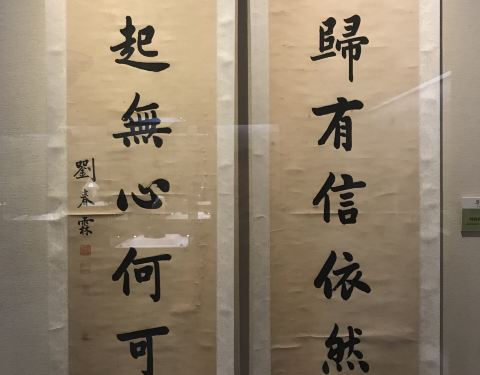 歸有信依然
起無心何可
劉春霖